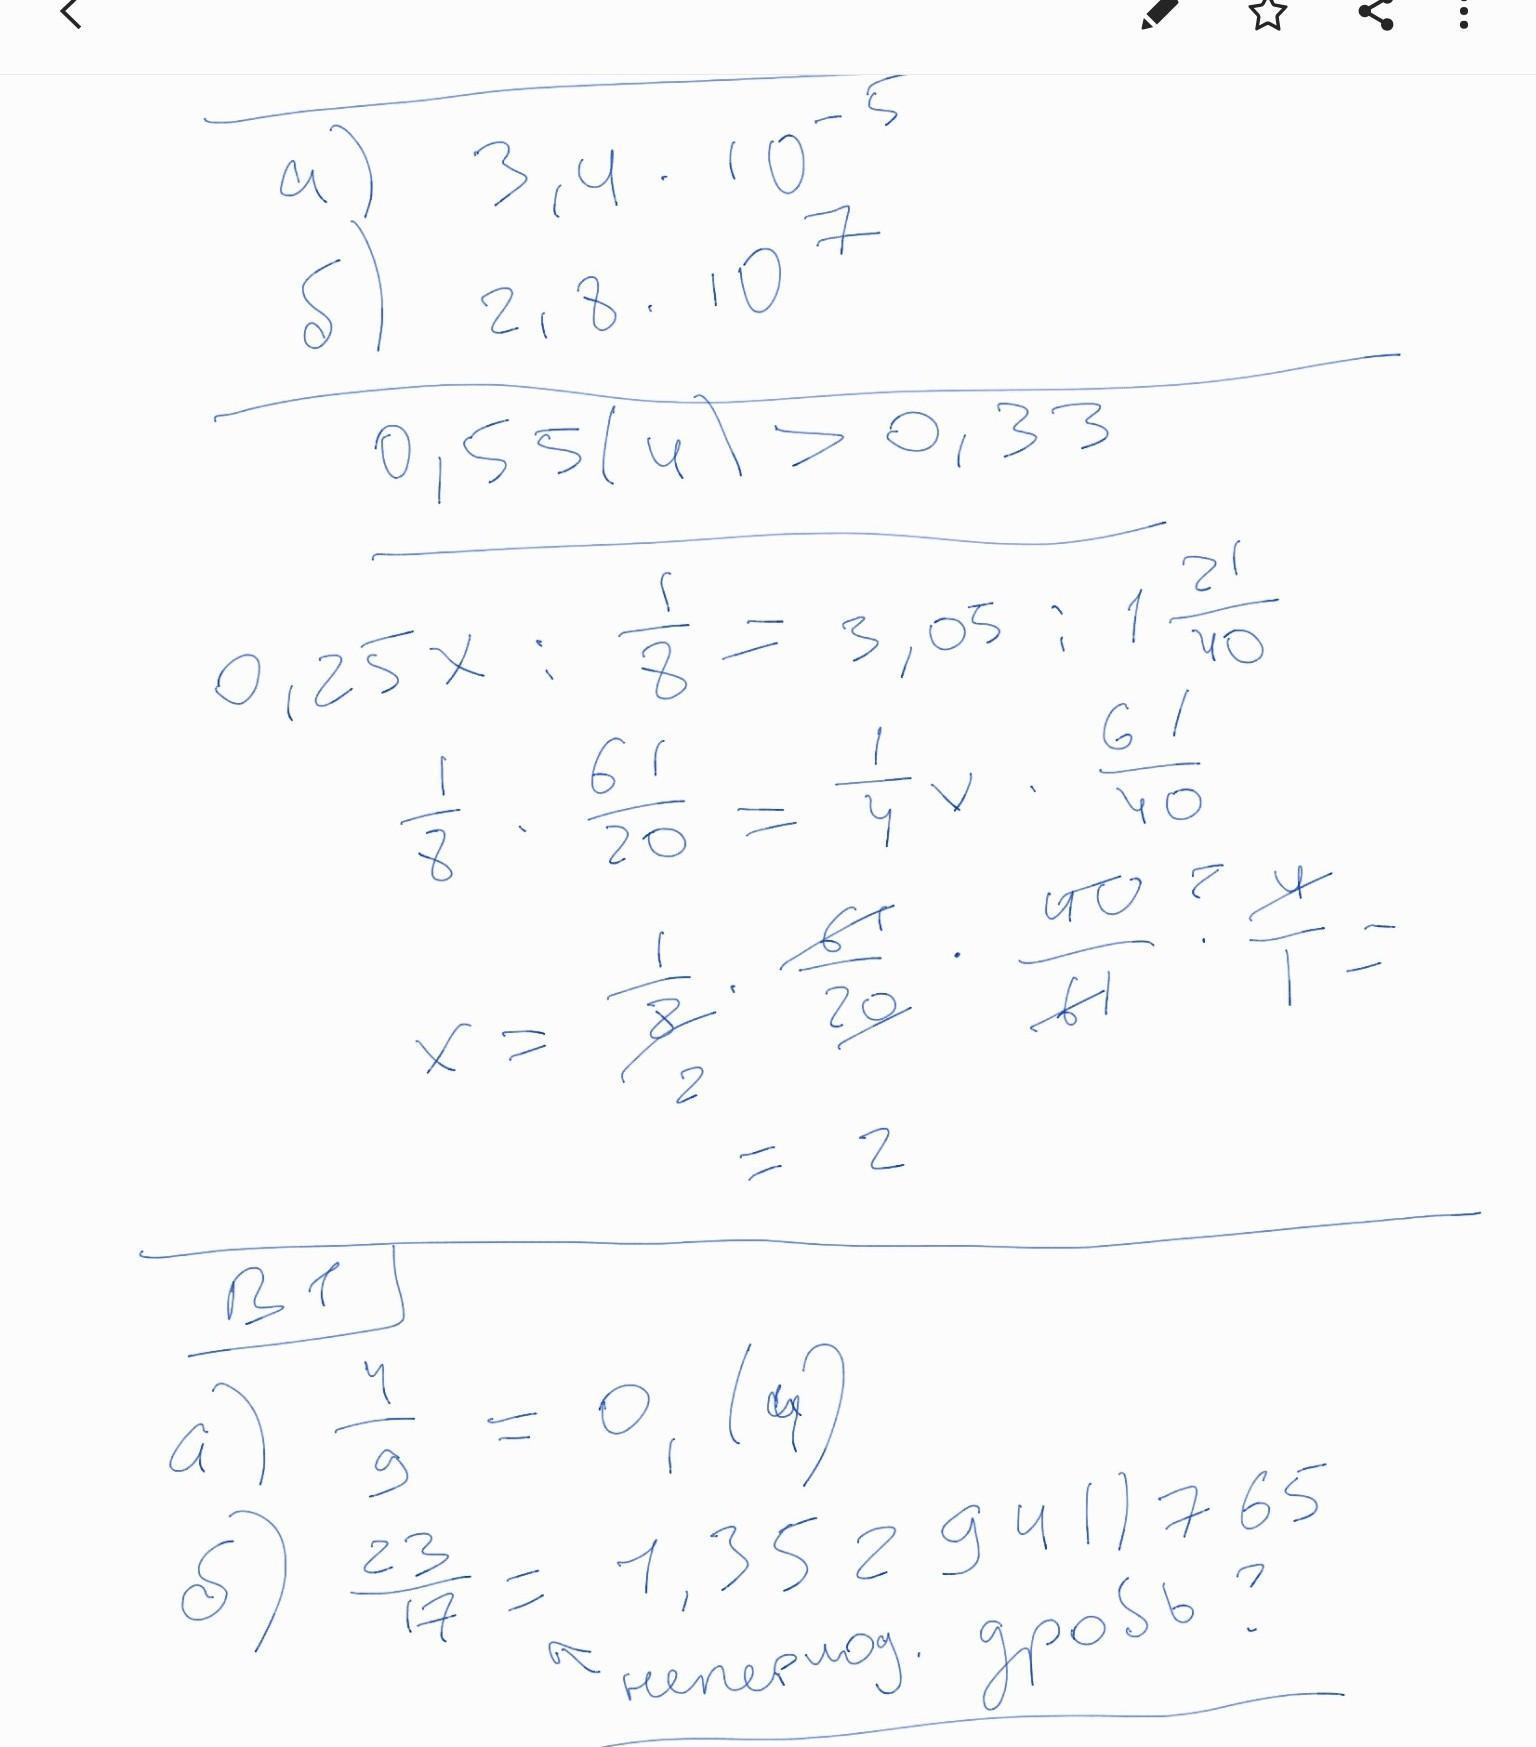 а) 3,4 · 10⁻⁵
б) 2,8 · 10⁷
0,55(4) > 0,33
0,25x : 1/8 = 3,05 : 1 21/40
1/8 · 61/20 = 1/4 x · 61/40
x = 1/8 2 · 61/20 · 40/61 2 · 4/1 =
= 2
В 1
а) 4/9 = 0,(4)
б) 23/17 = 1,3529411765
непериод. дробь?